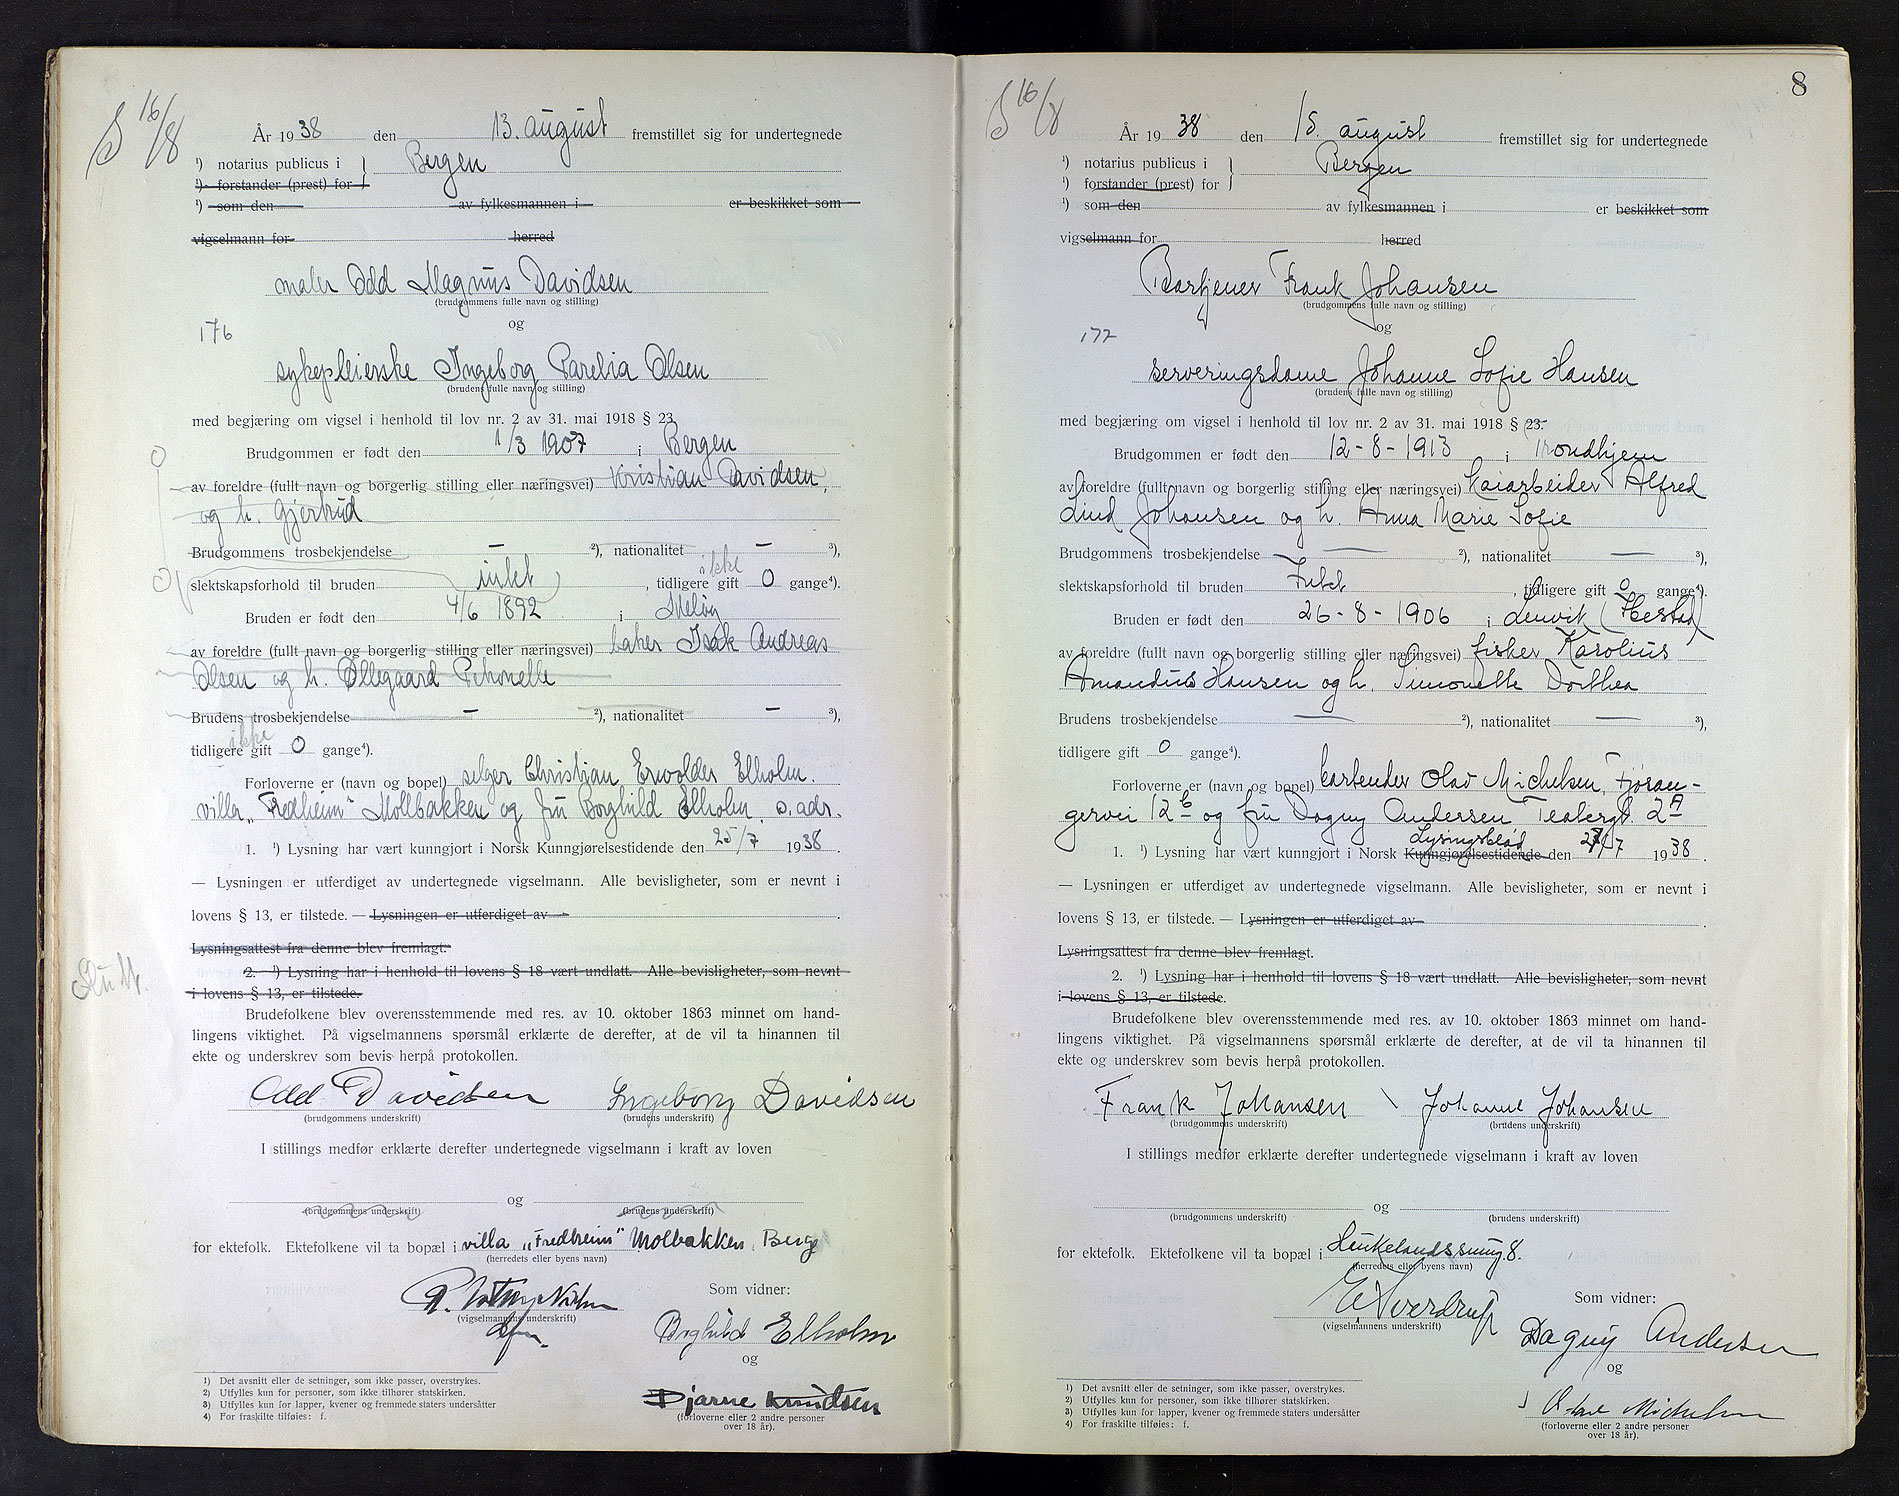 S 16/8
År 1938 den 13. august fremstillet sig for undertegnede
¹) notarius publicus i } Bergen
¹) forstander (prest) for
¹) som den av fylkesmannen i er beskikket som
vigselmann for herred
maler Odd Magnus Davidsen
(brudgommens fulle navn og stilling)
og
176
sykepleierske Ingeborg Parelia Olsen
(brudens fulle navn og stilling)
med begjæring om vigsel i henhold til lov nr. 2 av 31. mai 1918 § 23.
Brudgommen er født den 1/3 1907 i Bergen
av foreldre (fullt navn og borgerlig stilling eller næringsvei) Kristian Davidsen,
og h. Gjertrud
Brudgommens trosbekjendelse — ²), nationalitet — ³),
ikke
slektskapsforhold til bruden intet, tidligere gift 0 gange⁴).
Bruden er født den 4/6 1892 i Meløy
av foreldre (fullt navn og borgerlig stilling eller næringsvei) baker Isak Andreas
Olsen og h. Øllegaard Petronelle
Brudens trosbekjendelse — ²), nationalitet — ³),
ikke
tidligere gift 0 gange⁴).
Forloverne er (navn og bopel) selger Christian Elholm.
villa „Fredheim" Mollbakken og fru Borghild Elholm, s. adr.
1. ¹) Lysning har vært kunngjort i Norsk Kunngjørelsestidende den 25/7 1938.
— Lysningen er utferdiget av undertegnede vigselmann. Alle bevisligheter, som er nevnt i
lovens § 13, er tilstede. — Lysningen er utferdiget av
Lysningsattest fra denne blev fremlagt.
2. ¹) Lysning har i henhold til lovens § 18 vært undlatt. Alle bevisligheter, som nevnt
i lovens § 13, er tilstede.
Brudefolkene blev overensstemmende med res. av 10. oktober 1863 minnet om hand-
lingens viktighet. På vigselmannens spørsmål erklærte de derefter, at de vil ta hinannen til
ekte og underskrev som bevis herpå protokollen.
Odd Davidsen Ingeborg Davidsen
(brudgommens underskrift) (brudens underskrift)
I stillings medfør erklærte derefter undertegnede vigselmann i kraft av loven
og
(brudgommens underskrift) (brudens underskrift)
for ektefolk. Ektefolkene vil ta bopæl i villa „Fredheim" Molbakken, Berg
(herredets eller byens navn)
Som vidner:
(vigselmannens underskrift)
Borghild Elholm
og
Bjarne Knudtsen
(forloverne eller 2 andre personer
over 18 år).
1) Det avsnitt eller de setninger, som ikke passer, overstrykes.
2) Utfylles kun for personer, som ikke tilhører statskirken.
3) Utfylles kun for lapper, kvener og fremmede staters undersåtter
4) For fraskilte tilføies: f.
8
S 16/8
År 1938 den 15. august fremstillet sig for undertegnede
¹) notarius publicus i } Bergen
¹) forstander (prest) for
¹) som den av fylkesmannen i er beskikket som
vigselmann for herred
Bartjener Frank Johansen
(brudgommens fulle navn og stilling)
og
177
serveringsdame Johanne Sofie Hansen
(brudens fulle navn og stilling)
med begjæring om vigsel i henhold til lov nr. 2 av 31. mai 1918 § 23.
Brudgommen er født den 12-8-1913 i Trondhjem
av foreldre (fullt navn og borgerlig stilling eller næringsvei) Kaiarbeider Alfred
Lind Johansen og h. Anna Marie Sofie
Brudgommens trosbekjendelse — ²), nationalitet — ³),
slektskapsforhold til bruden Intet, tidligere gift 0 gange⁴).
Bruden er født den 26-8-1906 i Lenvik
av foreldre (fullt navn og borgerlig stilling eller næringsvei) fisker Karolius
Amandus Hansen og h. Simonette Dorthea
Brudens trosbekjendelse — ²), nationalitet — ³),
tidligere gift 0 gange⁴).
Forloverne er (navn og bopel) bartender Olav Michelsen, Fjøsan-
gervei 12b og fru Dagny Andersen Teatergt 2A
Lysingsblad
1. ¹) Lysning har vært kunngjort i Norsk Kunngjørelsestidende den 27/7 1938.
— Lysningen er utferdiget av undertegnede vigselmann. Alle bevisligheter, som er nevnt i
lovens § 13, er tilstede. — Lysningen er utferdiget av
Lysningsattest fra denne blev fremlagt.
2. ¹) Lysning har i henhold til lovens § 18 vært undlatt. Alle bevisligheter, som nevnt
i lovens § 13, er tilstede.
Brudefolkene blev overensstemmende med res. av 10. oktober 1863 minnet om hand-
lingens viktighet. På vigselmannens spørsmål erklærte de derefter, at de vil ta hinannen til
ekte og underskrev som bevis herpå protokollen.
Frank Johansen Johanne Johansen
(brudgommens underskrift) (brudens underskrift)
I stillings medfør erklærte derefter undertegnede vigselmann i kraft av loven
og
(brudgommens underskrift) (brudens underskrift)
for ektefolk. Ektefolkene vil ta bopæl i Haukelandssmug 8.
(herredets eller byens navn)
Sverdrup Som vidner:
(vigselmannens underskrift)
Dagny Andersen
og
Michelsen
(forloverne eller 2 andre personer
over 18 år).
1) Det avsnitt eller de setninger, som ikke passer, overstrykes.
2) Utfylles kun for personer, som ikke tilhører statskirken.
3) Utfylles kun for lapper, kvener og fremmede staters undersåtter
4) For fraskilte tilføies: f.